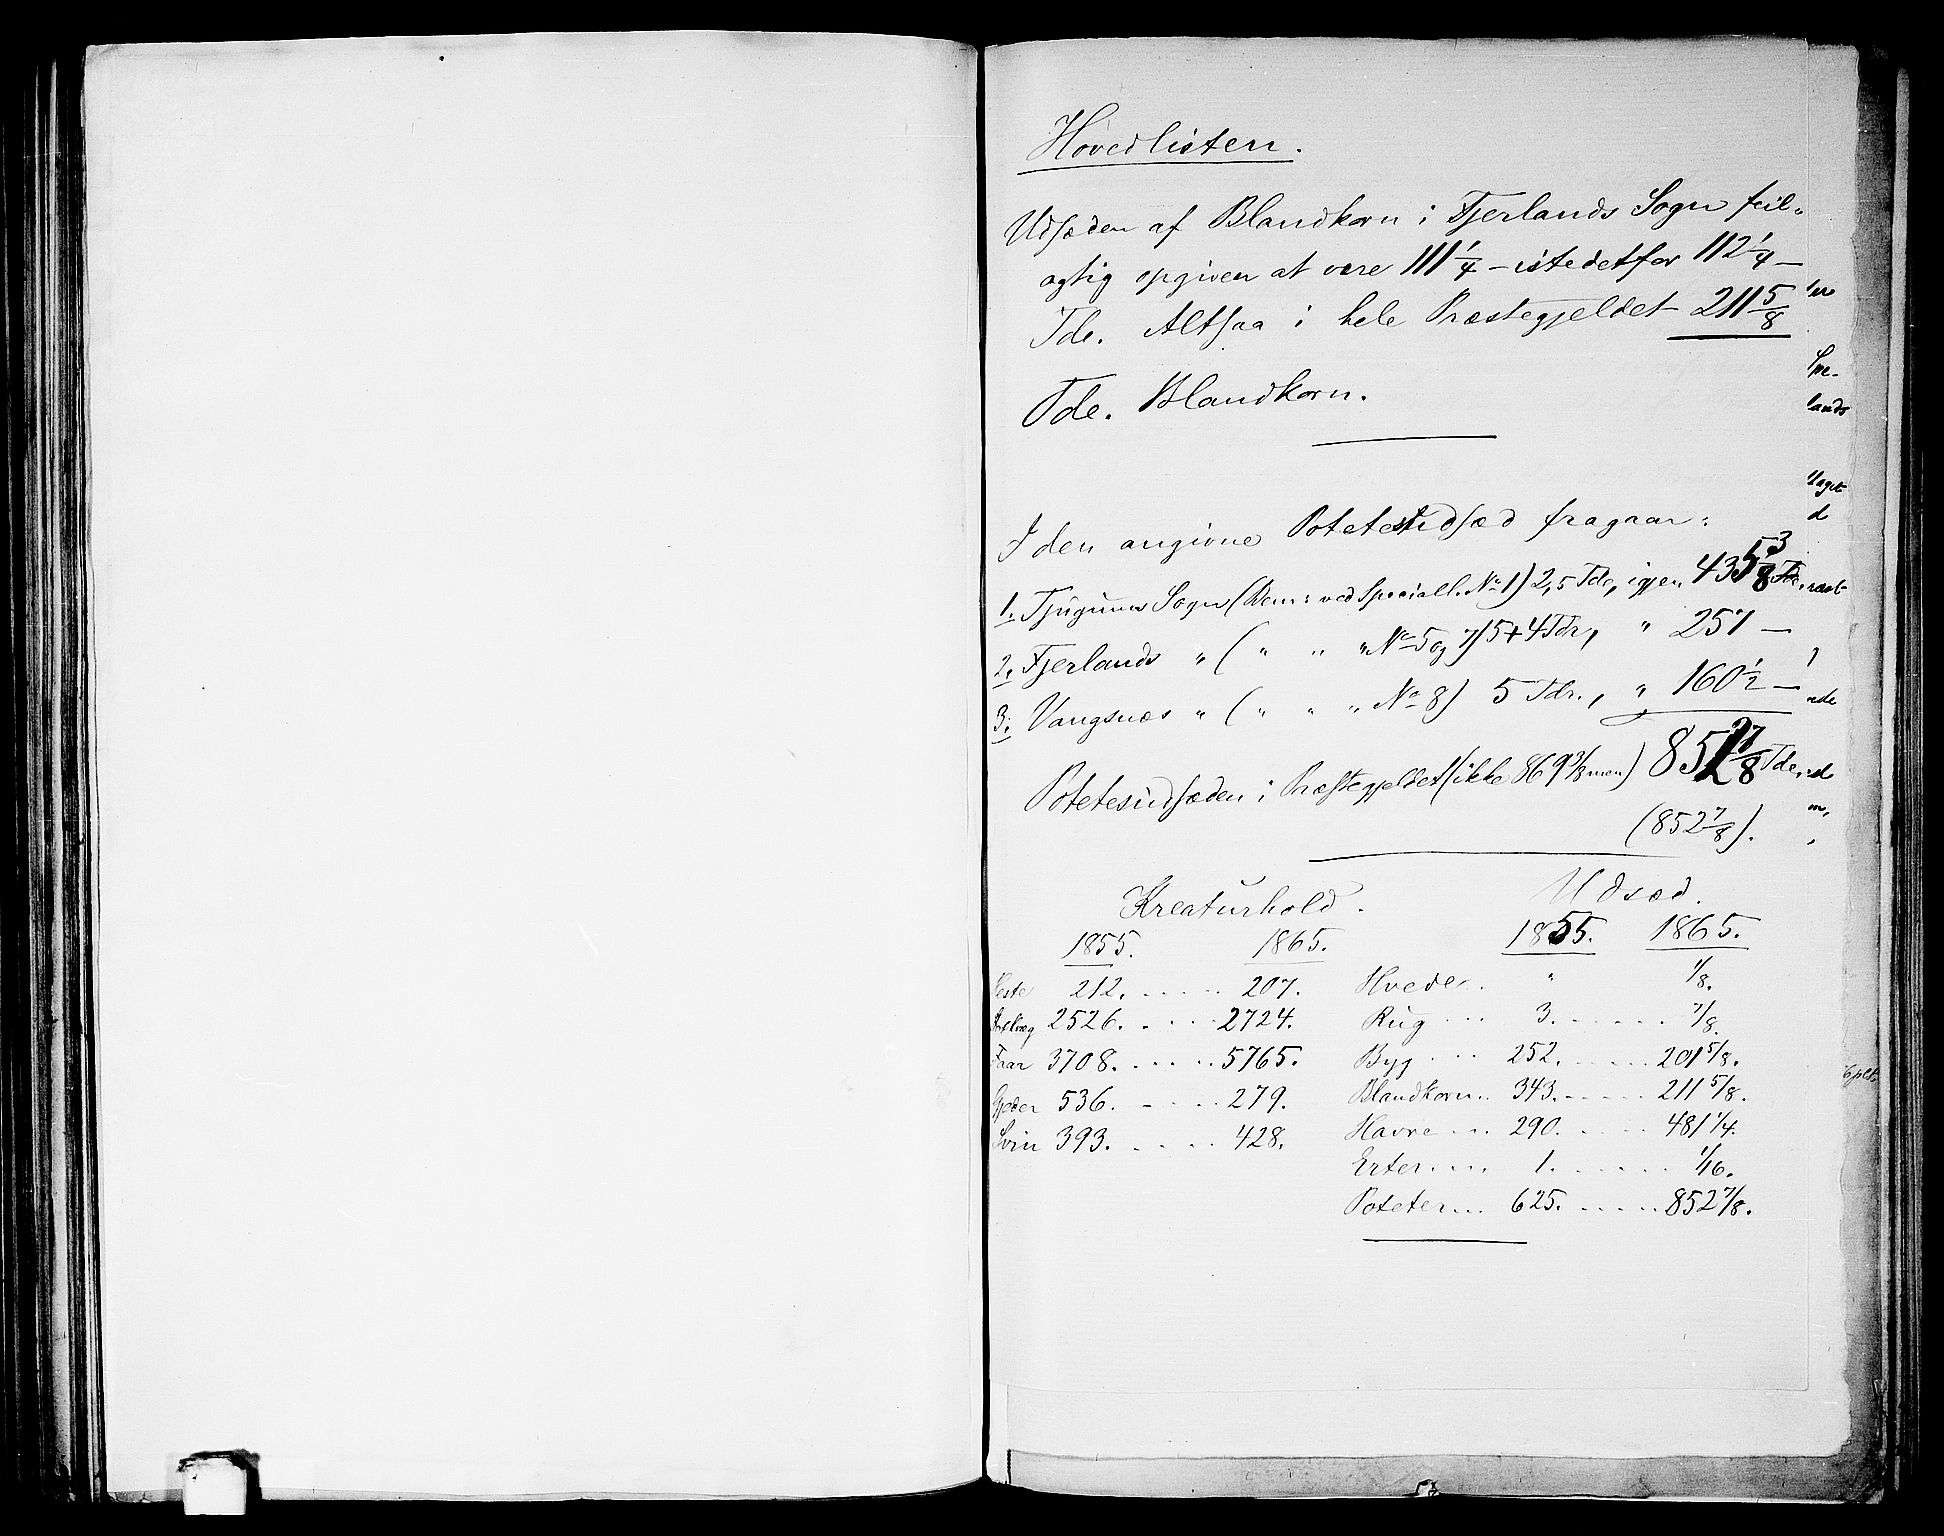 Hovedlisten.
Udsæden af Blandkorn i Fjerlands Sogn feil-
agtig opgiven at være 111 1/4 – istedetfor 112 1/4 –
Tde. Altsaa i hele Præstegjeldet 211 5/8
Tde. Blandkorn.
I den angivne Potetesudsæd fragaar:
1. Tjugums Sogn (Bem: ved Speciall. No 1) 2,5 Tde, igjen 435 3/8 Tde.
2. Fjerlands " ( " " " No 5 og 7) 5+4 Tdr, " 257 –
3. Vangsnæs " ( " " " No 8) 5 Tdr., " 160 1/2 –
Potetesudsæden i Præstegjeldet (ikke 869 3/8 men) 852 7/8 Tde.
(852 7/8).
Kreaturhold. Udsæd.
1855. 1865. 1855. 1865.
Heste 212. ..... 207. Hvede. . " 1/8.
Storkvæg 2526. ..... 2724. Rug ... 3. ...... 7/8.
Faar 3708. ..... 5765. Byg ... 252. ...... 201 5/8.
Gjeder 536. ..... 279. Blandkorn.. 343. ..... 211 5/8.
Svin 393. ..... 428. Havre ... 290. ..... 481 1/4.
Erter.... 1. ...... 1/16.
Poteter... 625. ..... 852 7/8.